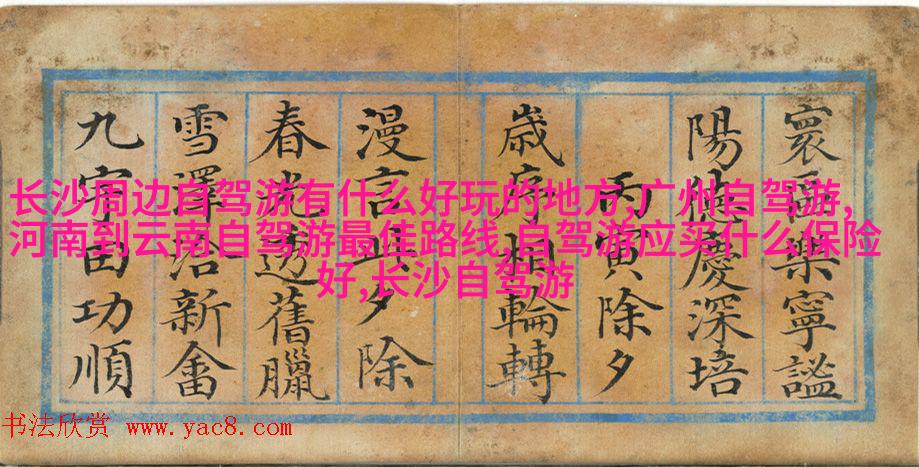 长沙周边自驾游有什么好玩的地方,广州自驾游,
河南到云南自驾游最佳路线,自驾游应买什么保险
好,长沙自驾游
寰區樂寧謐
陽德慶深培
丙寅除夕
歲序相輪轉
漫言夕除
春光透舊臘
雪澤洽新畬
九宇田功順
书法欣赏 www.yac8.com